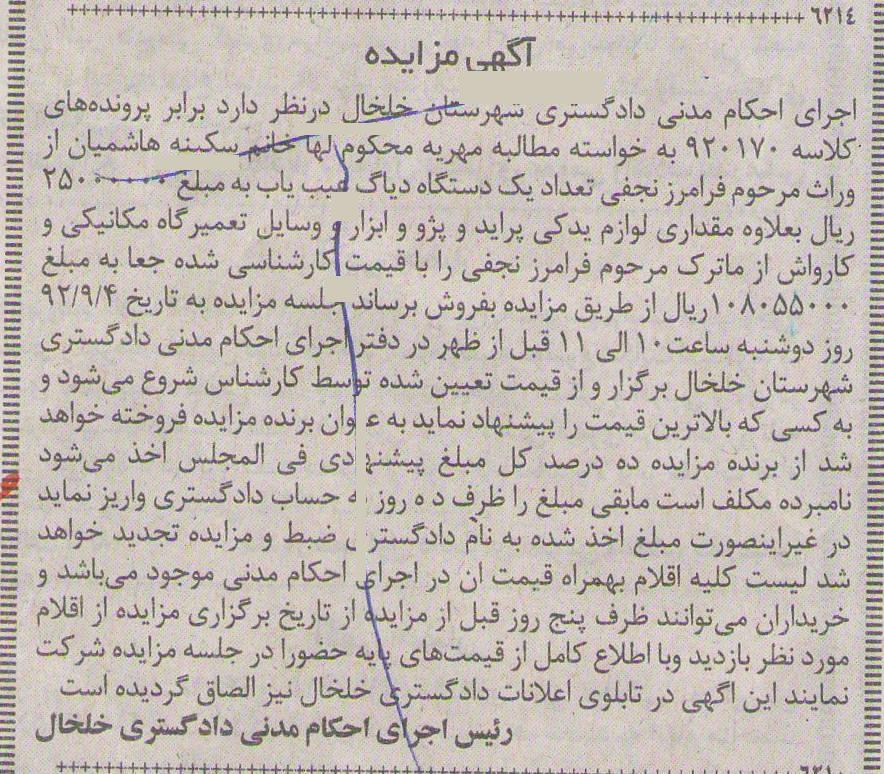 ٦٢١٤
آگهی مزایده
اجرای احکام مدنی دادگستری شهرستان خلخال درنظر دارد برابر پرونده‌های
کلاسه ۹۲۰۱۷۰ به خواسته مطالبه مهریه محکوم لها خانم سکینه هاشمیان از
وراث مرحوم فرامرز نجفی تعداد یک دستگاه دیاگ عیب یاب به مبلغ
ریال بعلاوه مقداری لوازم یدکی پراید و پژو و ابزار و وسایل تعمیرگاه مکانیکی و
کارواش از ماترک مرحوم فرامرز نجفی را با قیمت کارشناسی شده جعا به مبلغ
۱۰۸۰۵۵۰۰۰ریال از طریق مزایده بفروش برساند جلسه مزایده به تاریخ ۹۲/۹/۴
روز دوشنبه ساعت۱۰ الی ۱۱ قبل از ظهر در دفتر اجرای احکام مدنی دادگستری
شهرستان خلخال برگزار و از قیمت تعیین شده توسط کارشناس شروع می‌شود و
به کسی که بالاترین قیمت را پیشنهاد نماید به عنوان برنده مزایده فروخته خواهد
شد از برنده مزایده ده درصد کل مبلغ پیشنهادی فی المجلس اخذ می‌شود
نامبرده مکلف است مابقی مبلغ را ظرف ده روز به حساب دادگستری واریز نماید
در غیراینصورت مبلغ اخذ شده به نام دادگستری ضبط و مزایده تجدید خواهد
شد لیست کلیه اقلام بهمراه قیمت ان در اجرای احکام مدنی موجود می‌باشد و
خریداران می‌توانند ظرف پنج روز قبل از مزایده از تاریخ برگزاری مزایده از اقلام
مورد نظر بازدید وبا اطلاع کامل از قیمت‌های پایه حضورا در جلسه مزایده شرکت
نمایند این اگهی در تابلوی اعلانات دادگستری خلخال نیز الصاق گردیده است
رئیس اجرای احکام مدنی دادگستری خلخال